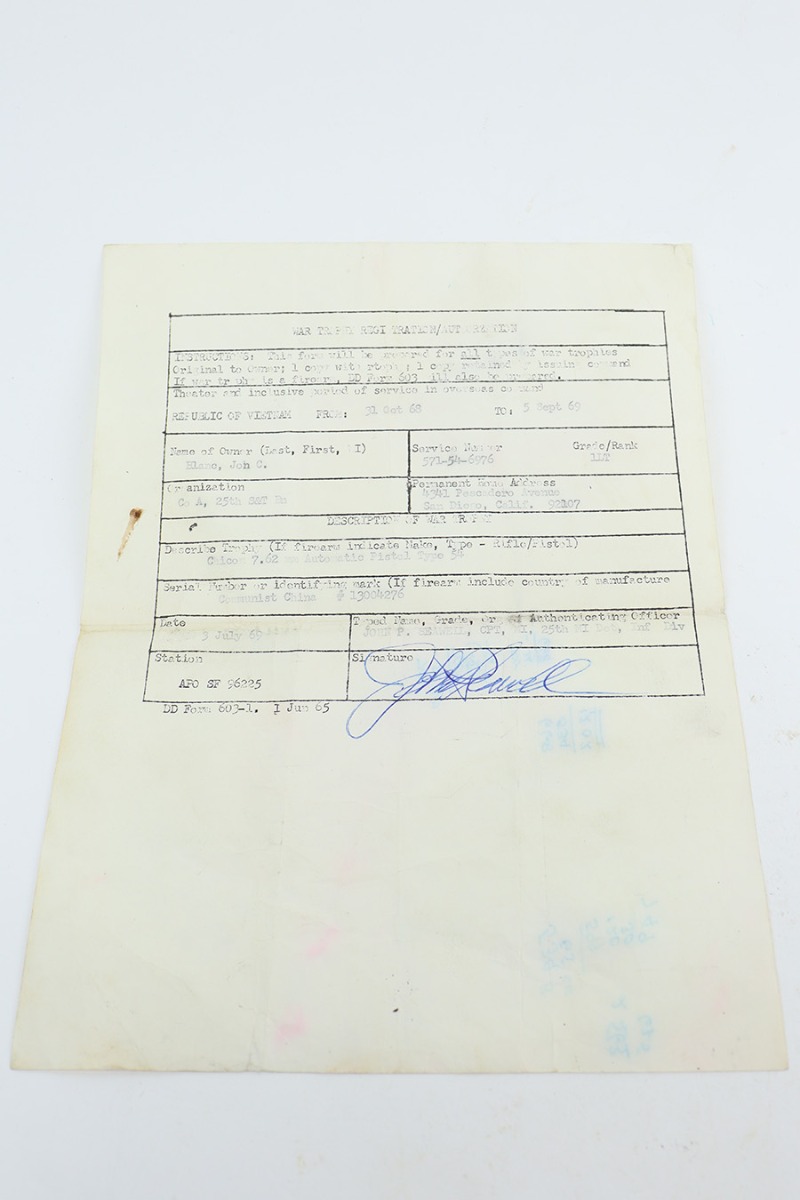 WAR TROPHY REGISTRATION/AUTHORIZATION
INSTRUCTIONS: This form will be prepared for all types of war trophies
Original to Owner; 1 copy with trophy; 1 copy retained by issuing command
If war trophy is a firearm, DD Form 603 will also be prepared.
Theater and inclusive period of service in overseas command
REPUBLIC OF VIETNAM FROM: 31 Oct 68 TO: 5 Sept 69
Name of Owner (Last, First, MI) Service Number Grade/Rank
Blanc, Joh C. 571-54-6976 1LT
Organization Permanent Home Address
Co A, 25th S&T Bn 4941 Pescadero Avenue
San Diego, Calif. 92107
DESCRIPTION OF WAR TROPHY
Describe Trophy (If firearm indicate Make, Type - Rifle/Pistol)
Chicom 7.62 mm Automatic Pistol Type 54
Serial Number or identifying mark (If firearm include country of manufacture
Communist China # 13004276
Date Typed Name, Grade, or of Authenticating Officer
3 July 69 JOHN P. SEWELL, CPT, MI, 25th MI Det, Inf Div
Station Signature
APO SF 96225
DD Form 603-1, 1 Jun 65